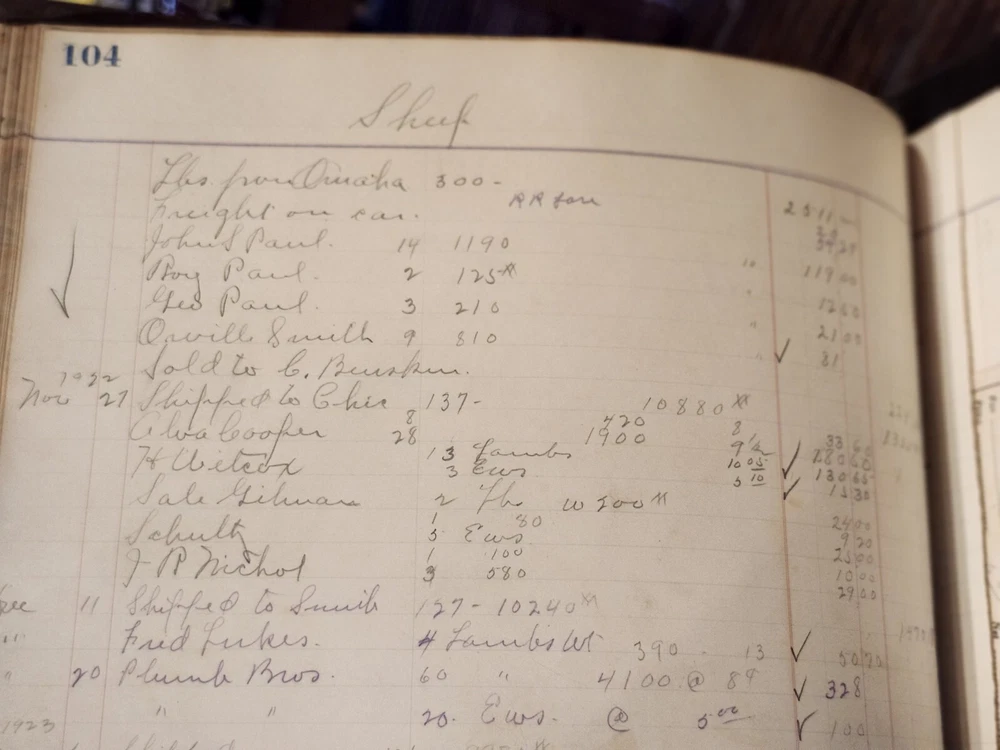 104
Sheep
Lbs. from Omaha 300 -
Freight on car. RR 2511 -
John S Paul. 14 1190
Roy Paul. 2 125# " 119 00
Geo Paul. 3 210 "
Orville Smith 9 810 " 21 00
Sold to C. " ✓ 81
1922
Nov 27 Shipped to Chic 137 - 10880#
Alva Cooper 8 420 8 33 60
28 1900 9 1/2 180
H Wilcox 13 Lambs 10 05 ✓ 130 65
3 Ews 5 10 ✓ 15 30
Sale Gilman 2 W 200# 24 00
1 80 9 20
Schultz 5 Ews. 25 00
J R Nichol 1 100 10 00
3 580 29 00
Dec 11 Shipped to 127 - 10240#
" Fred Lukes. 4 Lambs Wt 390 - 13 ✓ 50 70
" 20 Plumb Bros. 60 " 4100 @ 8¢ ✓ 328
" " 20. Ews. @ 5 00 ✓ 100
1923